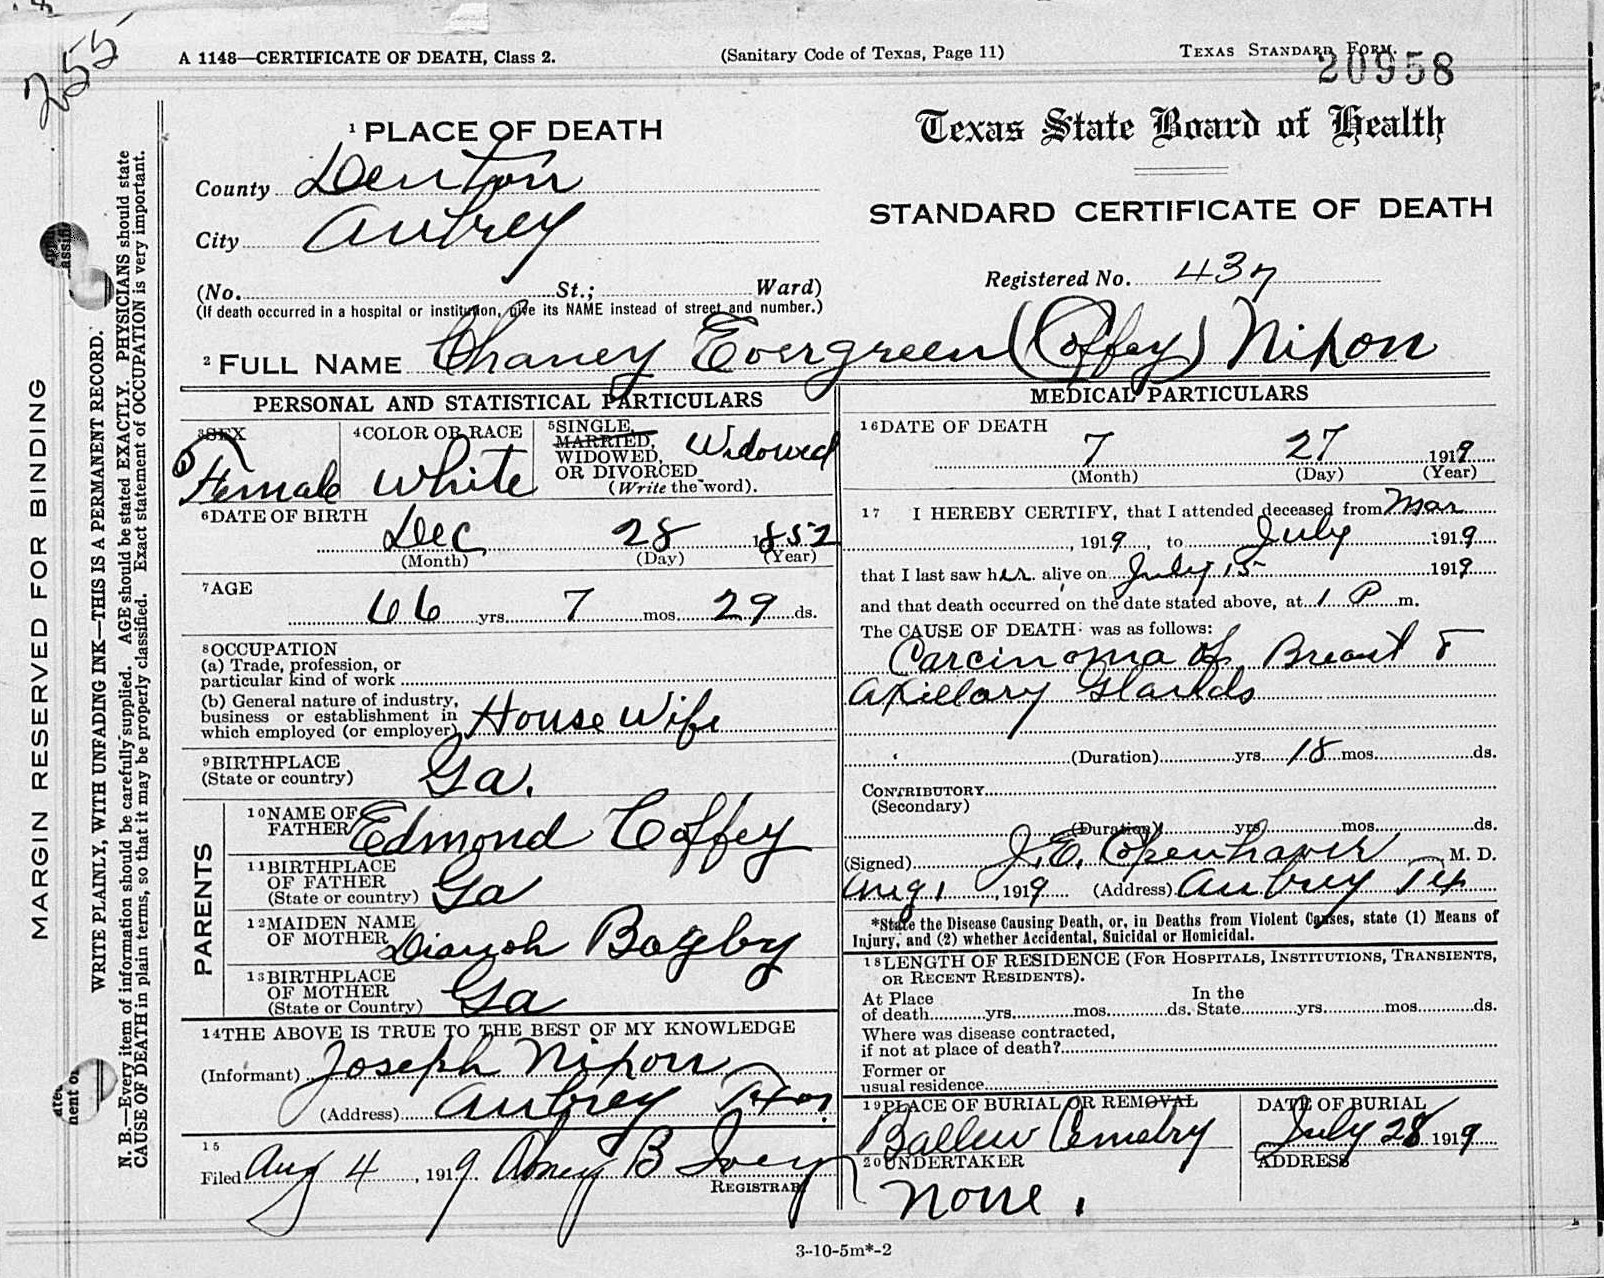 255
A 1148—CERTIFICATE OF DEATH, Class 2.
(Sanitary Code of Texas, Page 11)
TEXAS STANDARD FORM.
20958
MARGIN RESERVED FOR BINDING
WRITE PLAINLY, WITH UNFADING INK—THIS IS A PERMANENT RECORD.
N. B.—Every item of information should be carefully supplied. AGE should be stated EXACTLY. PHYSICIANS should state
CAUSE OF DEATH in plain terms, so that it may be properly classified. Exact statement of OCCUPATION is very important.
1 PLACE OF DEATH
County Denton
City Aubrey
(No. St.; Ward)
(If death occurred in a hospital or institution, give its NAME instead of street and number.)
Texas State Board of Health
STANDARD CERTIFICATE OF DEATH
Registered No. 437
2 FULL NAME Chaney Evergreen (Coffey) Nixon
PERSONAL AND STATISTICAL PARTICULARS
3 SEX
Female
4 COLOR OR RACE
White
5 SINGLE,
MARRIED,
WIDOWED,
OR DIVORCED
(Write the word).
Widowed
6 DATE OF BIRTH
Dec 28 1852
(Month) (Day) (Year)
7 AGE
66 yrs. 7 mos. 29 ds.
8 OCCUPATION
(a) Trade, profession, or
particular kind of work
(b) General nature of industry,
business or establishment in
which employed (or employer) House Wife
9 BIRTHPLACE
(State or country) Ga.
PARENTS
10 NAME OF
FATHER Edmond Coffey
11 BIRTHPLACE
OF FATHER
(State or country) Ga
12 MAIDEN NAME
OF MOTHER Bagby
13 BIRTHPLACE
OF MOTHER
(State or Country) Ga
14 THE ABOVE IS TRUE TO THE BEST OF MY KNOWLEDGE
(Informant) Joseph Nixon
(Address) Aubrey Texas
15
Filed Aug 4, 1919. B Ivey
REGISTRAR
MEDICAL PARTICULARS
16 DATE OF DEATH
7 27 1919
(Month) (Day) (Year)
17 I HEREBY CERTIFY, that I attended deceased from Mar
, 1919, to July 1919
that I last saw her alive on July 15 1919
and that death occurred on the date stated above, at 1 P m.
The CAUSE OF DEATH was as follows:
Carcinoma of Breast &
Axillary Glands
(Duration) yrs. 18 mos. ds.
CONTRIBUTORY
(Secondary)
(Duration) yrs. mos. ds.
(Signed) J. E. Copenhaver M. D.
Aug 1, 1919 (Address) Aubrey Tex
*State the Disease Causing Death, or, in Deaths from Violent Causes, state (1) Means of
Injury, and (2) whether Accidental, Suicidal or Homicidal.
18 LENGTH OF RESIDENCE (FOR HOSPITALS, INSTITUTIONS, TRANSIENTS,
OR RECENT RESIDENTS).
At Place
of death yrs. mos. ds.
In the
State yrs. mos. ds.
Where was disease contracted,
if not at place of death?
Former or
usual residence
19 PLACE OF BURIAL OR REMOVAL
Ballew Cemetry
DATE OF BURIAL
July 28 1919
20 UNDERTAKER
None.
ADDRESS
3-10-5m*-2